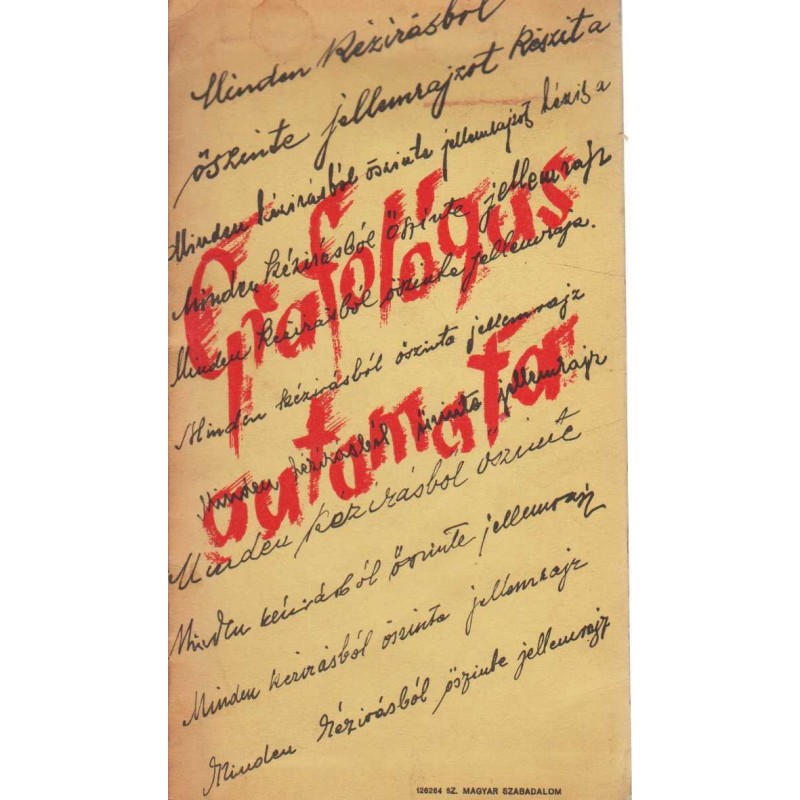 Minden kézírásból
őszinte jellemrajzot készít a
Minden kézirásból őszinte jellemrajzot készit a
Grafológus
Minden kézirásból őszinte jellemrajz
Minden kézirásból őszinte jellemrajz.
Minden kézirásból őszinte jellemrajz
automata
Minden kézirásból őszinte jellemrajz
Minden kézírásból őszinte
Minden kézirásból őszinte jellemrajz
Minden kézirásból őszinte jellemrajz
Minden kézirásból őszinte jellemrajz
126264 SZ. MAGYAR SZABADALOM